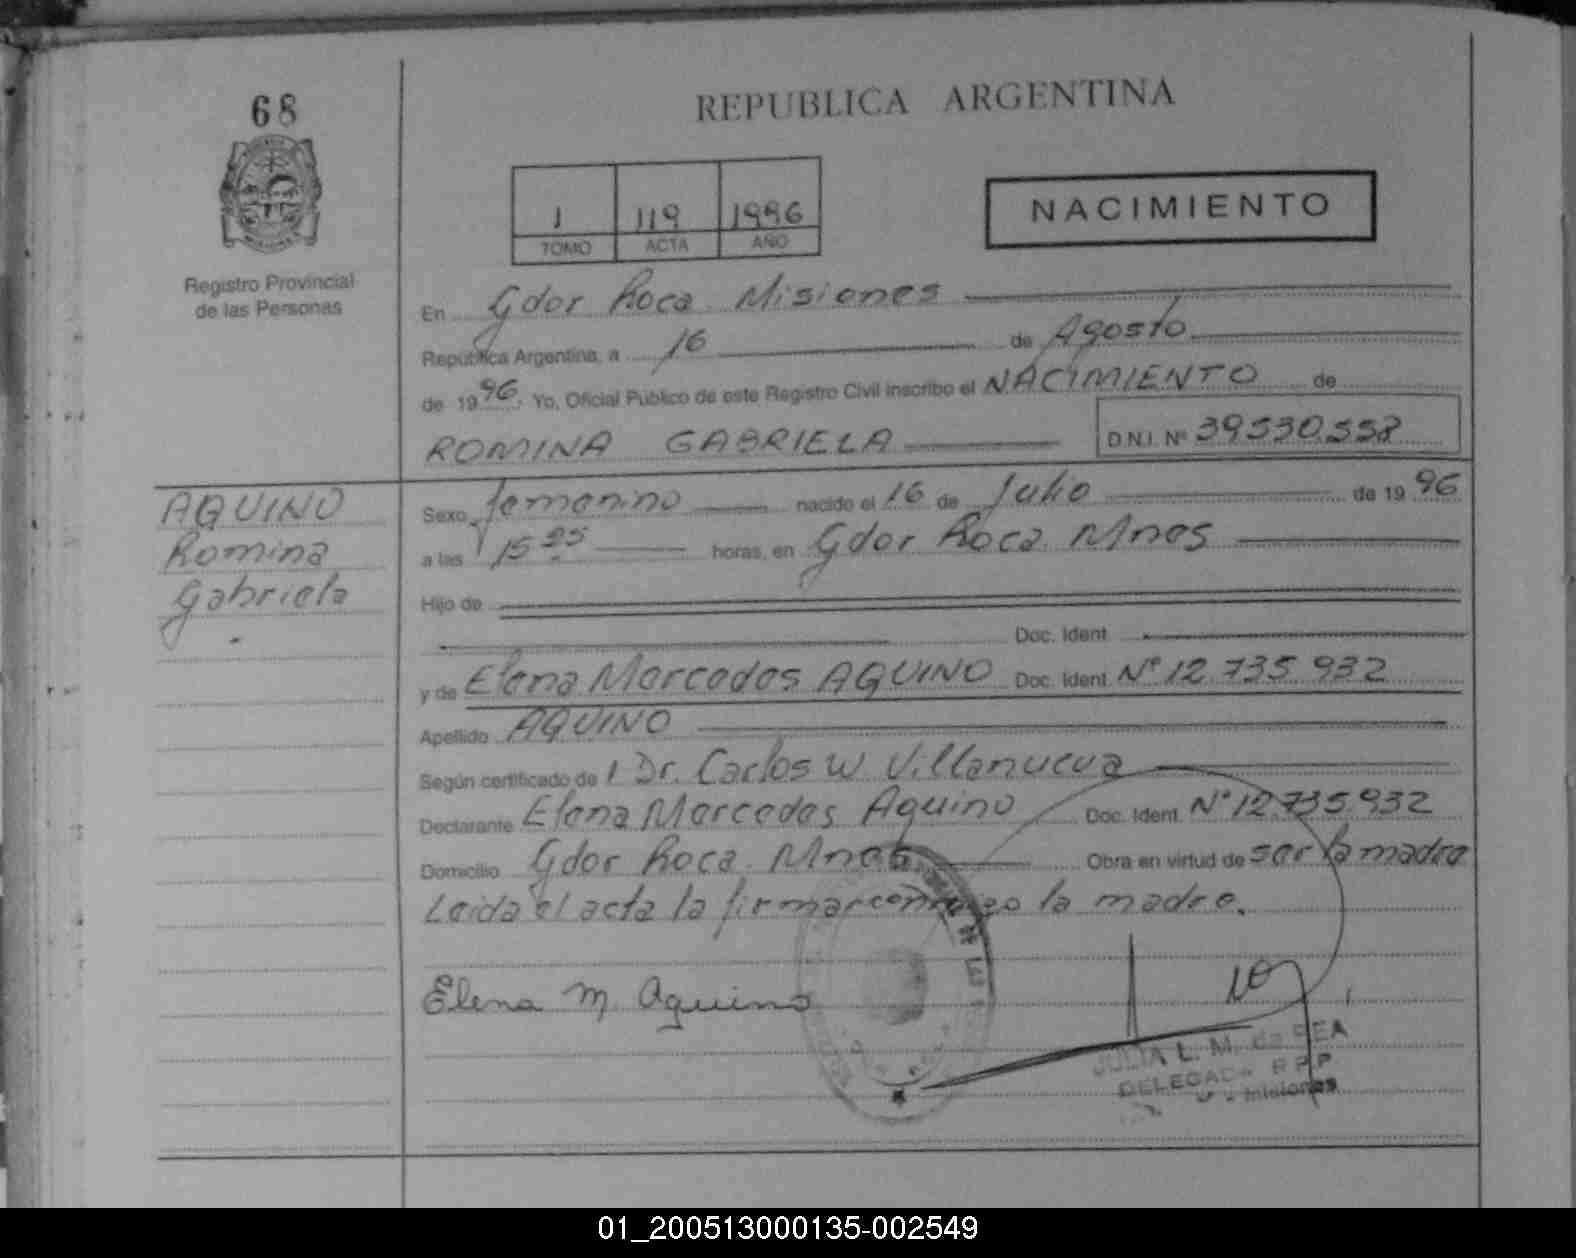 68
REPUBLICA ARGENTINA
1 119 1996
TOMO ACTA AÑO
NACIMIENTO
Registro Provincial
de las Personas
En Gdor Roca. Misiones
República Argentina, a 16 de Agosto
de 1996. Yo, Oficial Público de este Registro Civil inscribo el NACIMIENTO de
ROMINA GABRIELA D.N.I. Nº 39.530.558
AQUINO
Romina
Gabriela
Sexo femenino nacido el 16 de Julio de 1996
a las 15 25 horas, en Gdor Roca. Mnes
Hijo de
Doc. Ident.
y de Elena Mercedes AQUINO Doc. Ident. Nº 12.735.932
Apellido AQUINO
Según certificado de Dr. Carlos W Villanueva
Declarante Elena Mercedes Aquino Doc. Ident. Nº 12.735.932
Domicilio Gdor Roca. Mnes Obra en virtud de ser la madre
Leida el acta la firmar conmigo la madre.
Elena M. Aquino
JULIA L. M. de
DELEGADA R.P.P
Misiones
01_200513000135-002549